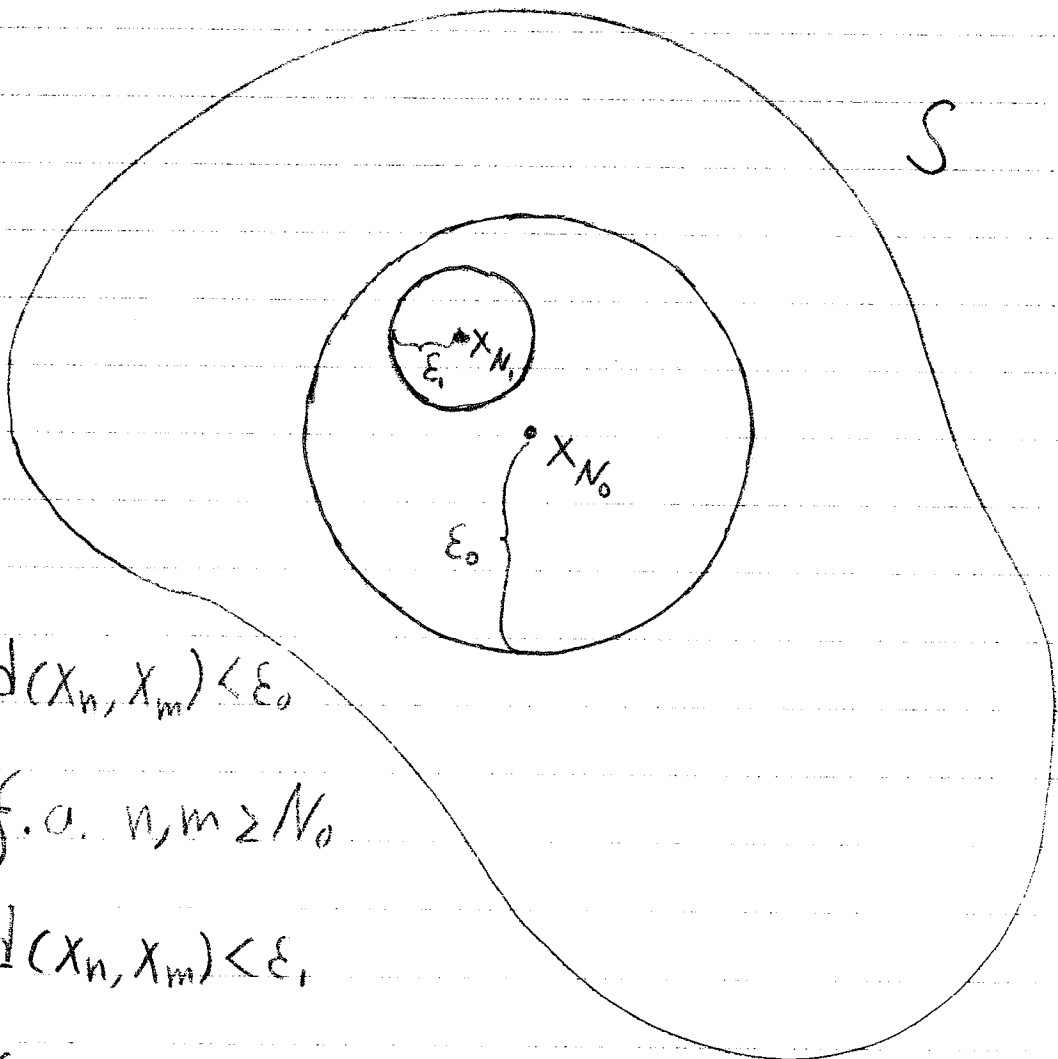 S
ε₁
x_N₁
x_N₀
ε₀
d(x_n, x_m) < ε₀
f.a. n, m ≥ N₀
d(x_n, x_m) < ε₁